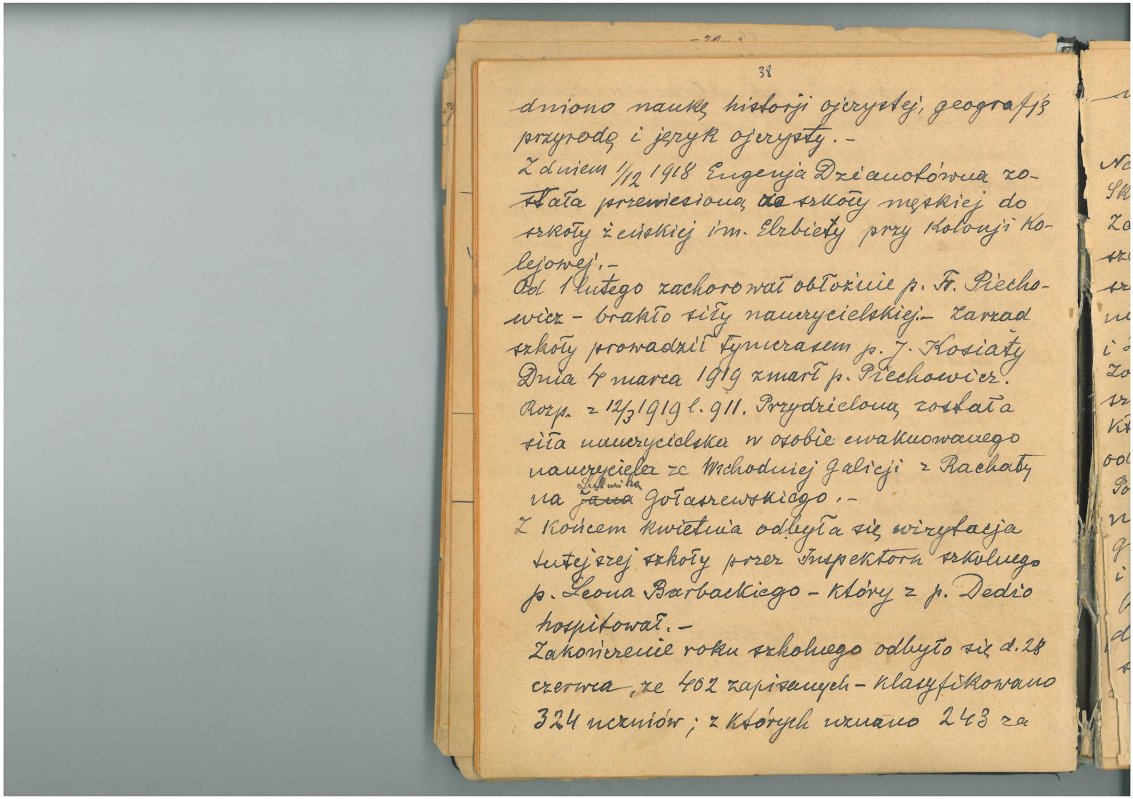 38
dniono naukę historji ojczystej, geografję
przyrodę i język ojczysty. -
Z dniem 1/12 1918 Eugenja Dzianotówna zo-
stała przeniesioną ze szkoły męskiej do
szkoły żeńskiej im. Elżbiety przy Kolonji Ko-
lejowej. -
Od 1 lutego zachorował obłożnie p. Fr. Piecho-
wicz - brakło siły nauczycielskiej. - Zarząd
szkoły prowadził tymczasem p. J. Kosiaty
Dnia 4 marca 1919 zmarł p. Piechowicz.
Rozp. z 12/3 1919 l. 911. Przydzieloną została
siła nauczycielska w osobie ewakuowanego
nauczyciela ze Wschodniej Galicji z Rachaty
Ludwika
na Jana Gołaszewskiego. -
Z końcem kwietnia odbyła się wizytacja
tutejszej szkoły przez Inspektora szkolnego
p. Leona Barbackiego - który z p. Dedio
hospitował. -
Zakończenie roku szkolnego odbyło się d. 28
czerwca, ze 402 zapisanych - klasyfikowano
324 uczniów; z których uznano 243 za